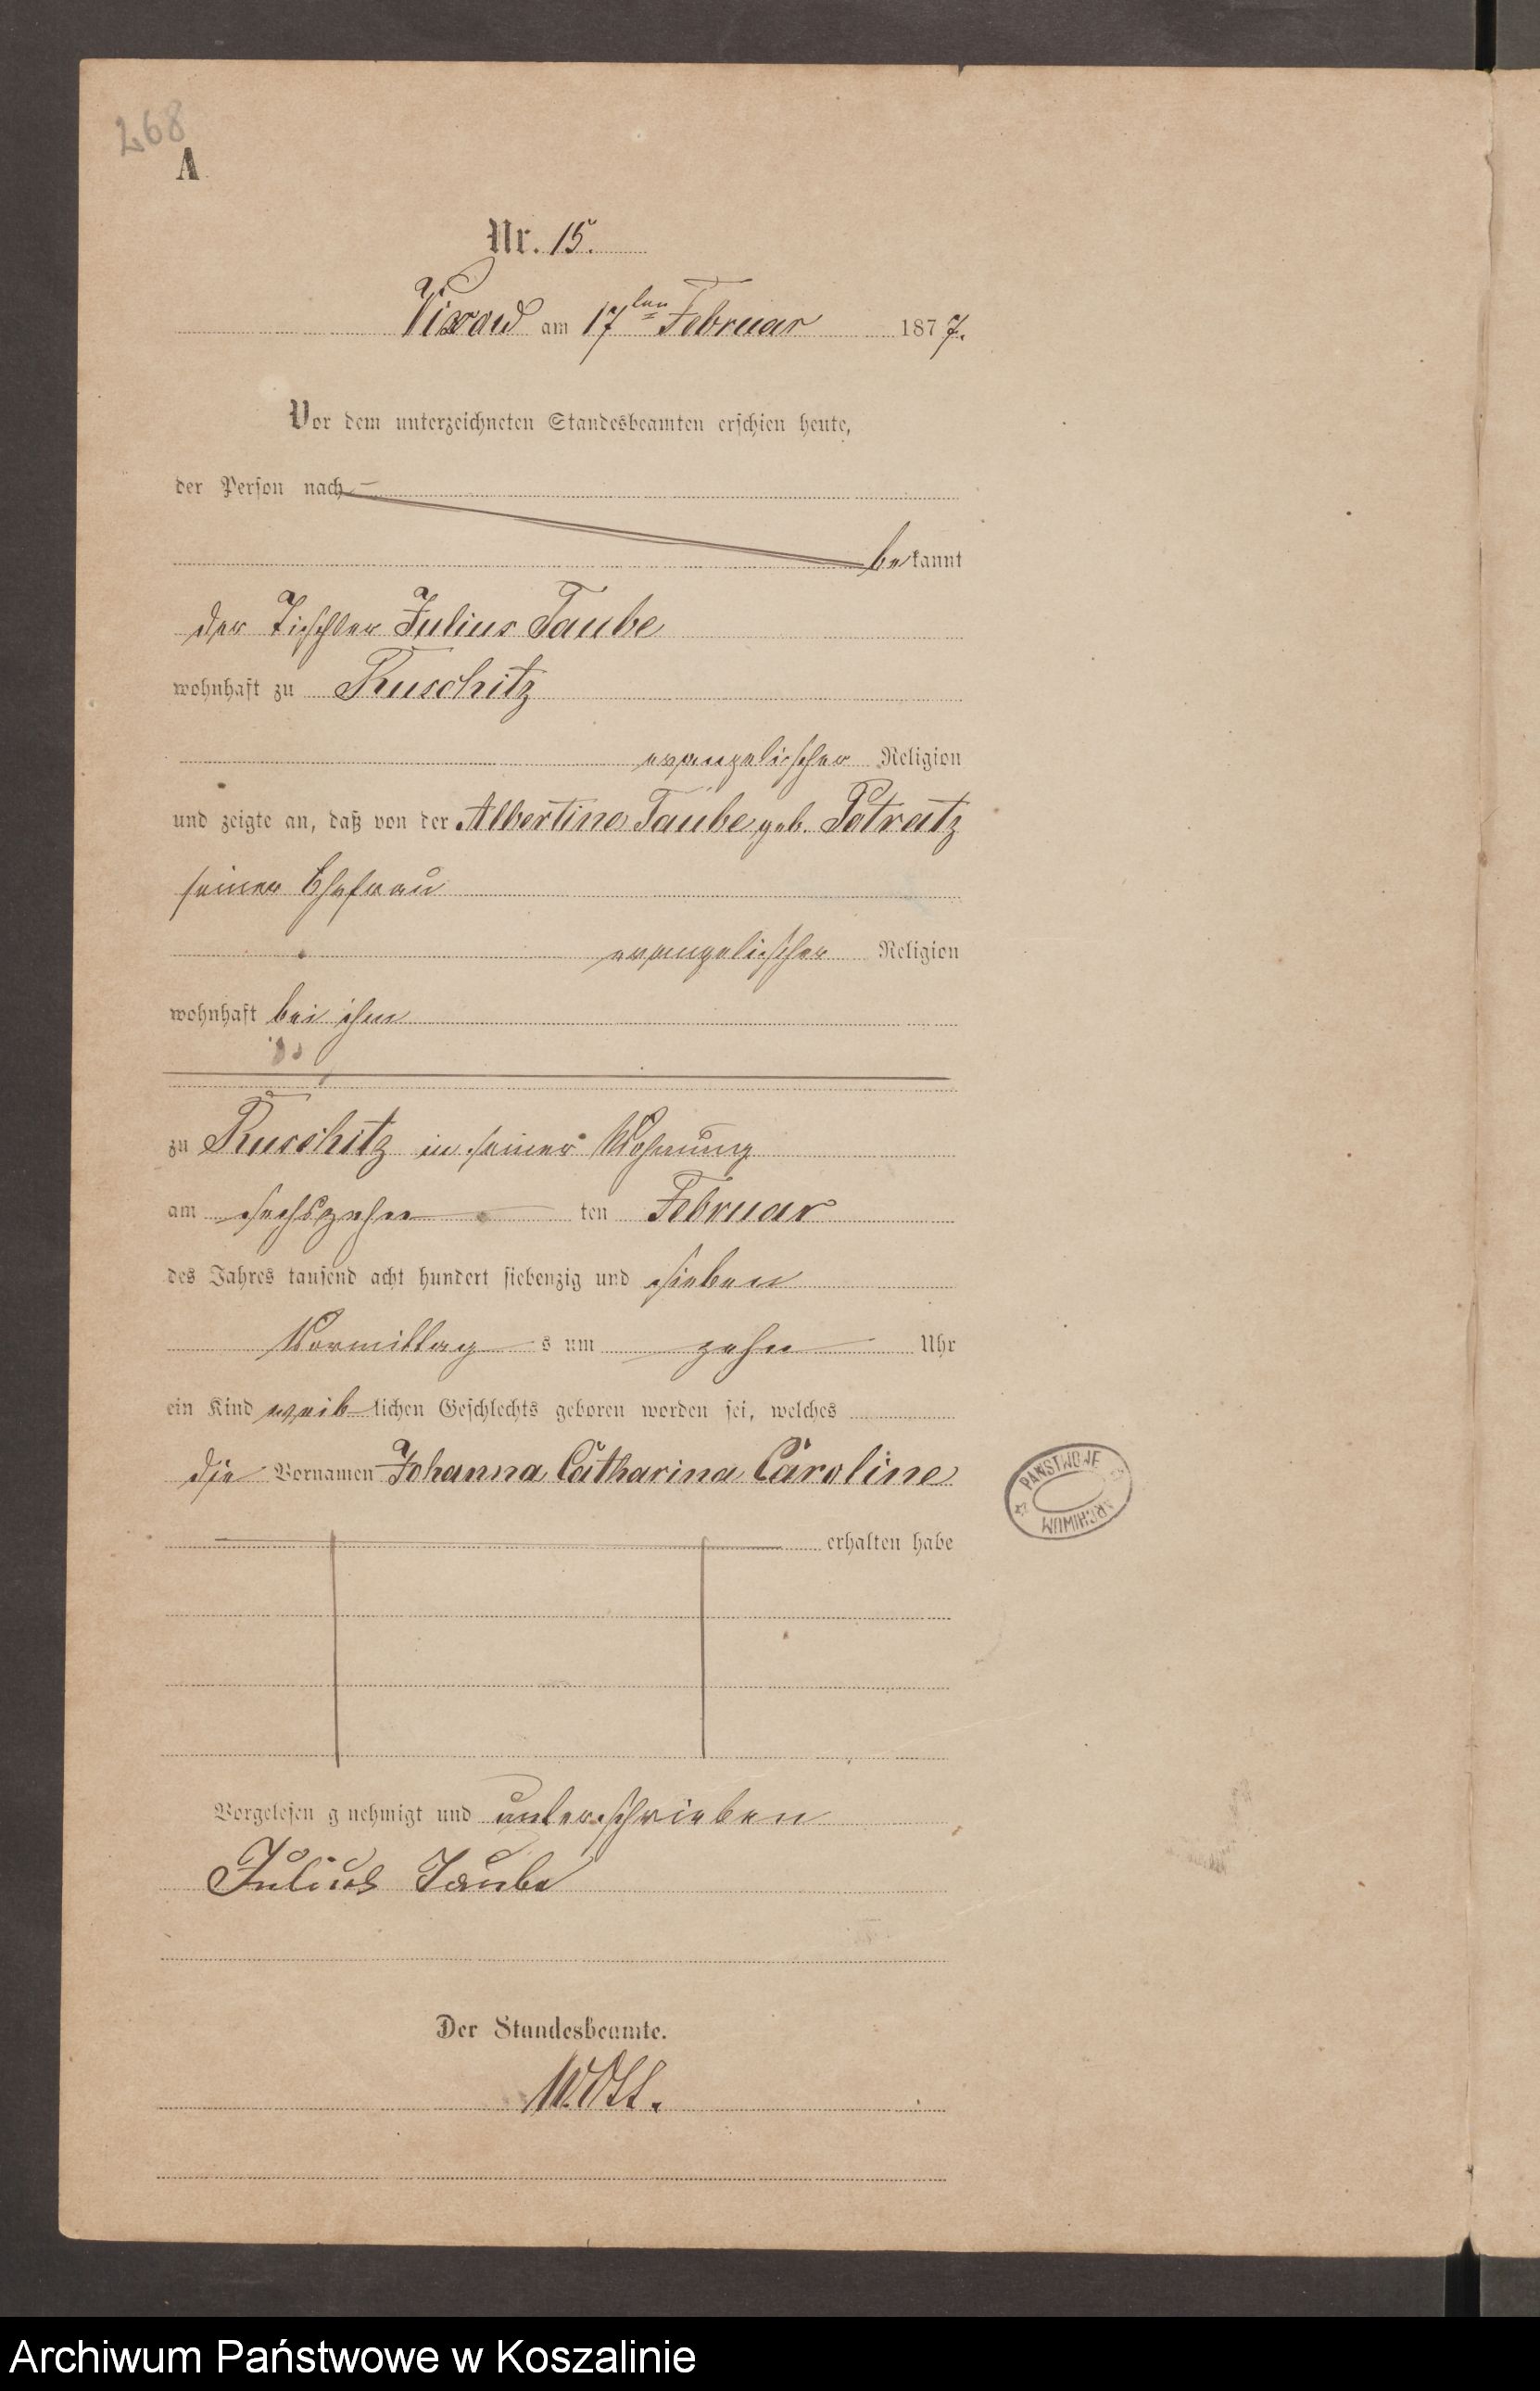 268
A
Nr. 15.
Vixow am 17ten Februar 1877.
Vor dem unterzeichneten Standesbeamten erschien heute,
der Person nach
bekannt
der Tischler Julius Taube
wohnhaft zu Ruschitz
evangelischer Religion
und zeigte an, daß von der Albertine Taube geb. Potratz
seiner Ehefrau
evangelischer Religion
wohnhaft bei ihm
zu Ruschitz in seiner Wohnung
am sechszehn ten Februar
des Jahres tausend acht hundert siebenzig und sieben
Vormittag s um zehn Uhr
ein Kind weiblichen Geschlechts geboren worden sei, welches
die Vornamen Johanna Catharina Caroline
PANSTWOWE
ARCHIWUM
erhalten habe
Vorgelesen g nehmigt und unterschrieben
Julius Taube
Der Standesbeamte.
Archiwum Państwowe w Koszalinie